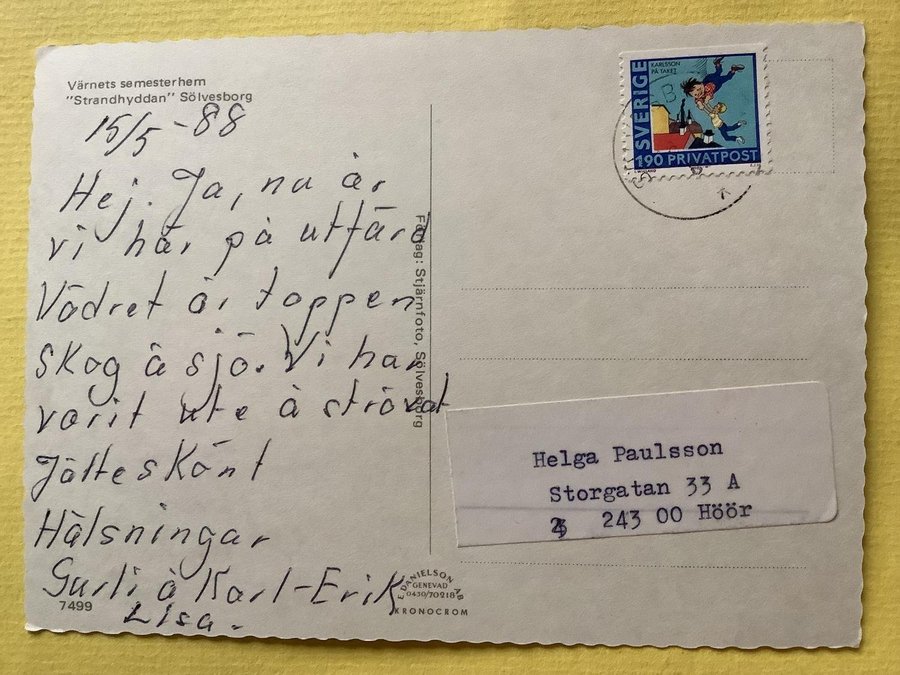 Värnets semesterhem
"Strandhyddan" Sölvesborg
15/5 -88
Hej. Ja, nu är
vi här på utfärd
Vädret är toppen
skog å sjö. Vi har
varit ute å strövat
Jätteskönt
Hälsningar
Gurli å Karl-Erik
Lisa.
7499
Förlag: Stjärnfoto, Sölvesborg
E. DANIELSON AB
GENEVAD
0430/70218
KRONOCROM
SVERIGE
KARLSSON
PÅ TAKET
190 PRIVATPOST
Helga Paulsson
Storgatan 33 A
243 00 Höör